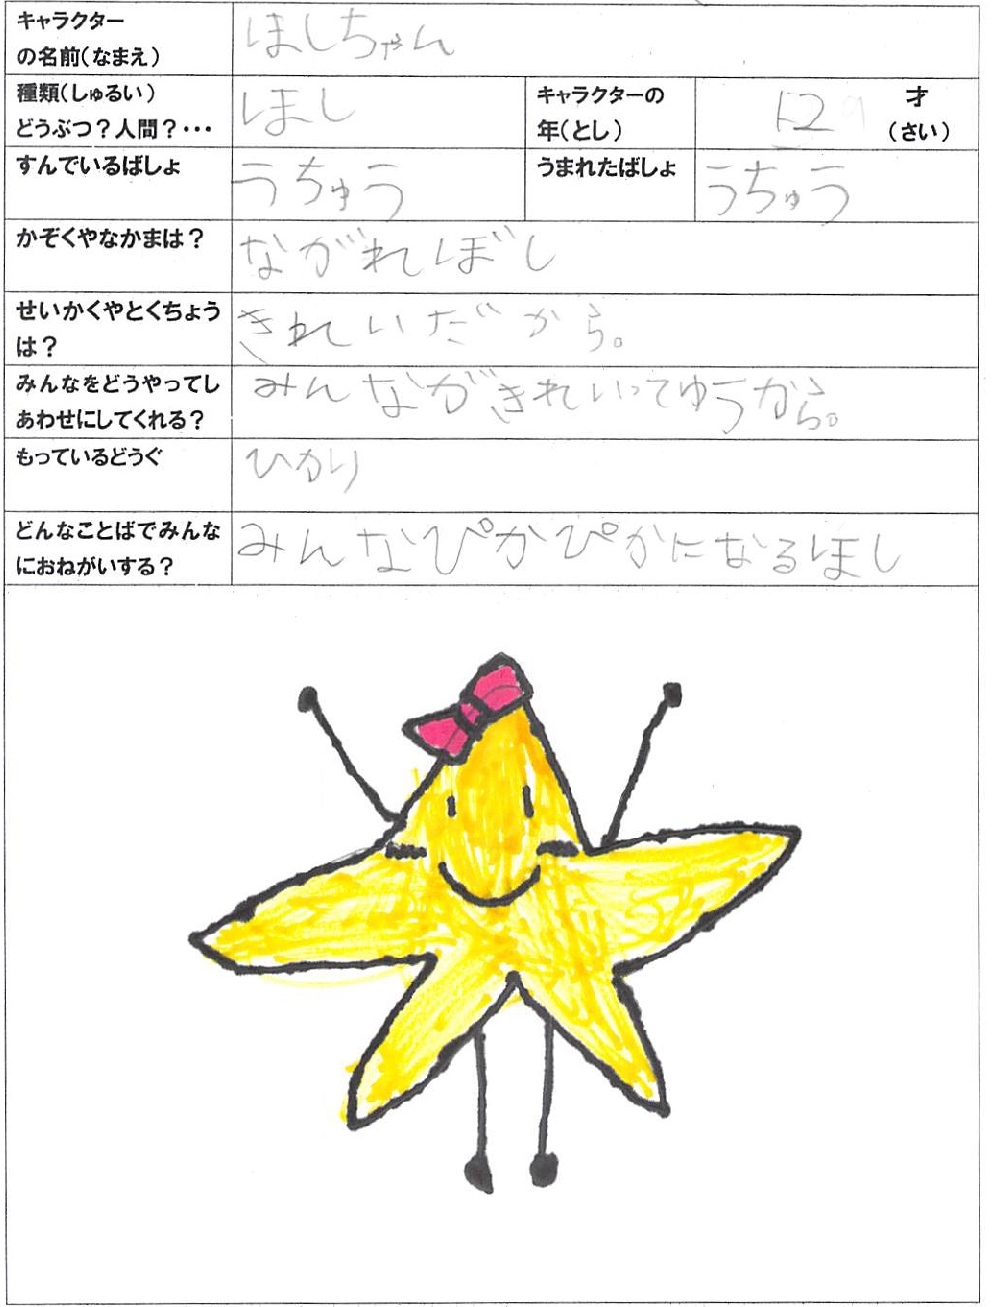 キャラクター
の名前(なまえ)
ほしちゃん
種類(しゅるい)
どうぶつ?人間?・・・
ほし
キャラクターの
年(とし)
12
才
(さい)
すんでいるばしょ
うちゅう
うまれたばしょ
うちゅう
かぞくやなかまは?
ながれぼし
せいかくやとくちょう
は?
きれいだから。
みんなをどうやってし
あわせにしてくれる?
みんながきれいってゆうから。
もっているどうぐ
ひかり
どんなことばでみんな
におねがいする?
みんなぴかぴかになるほし